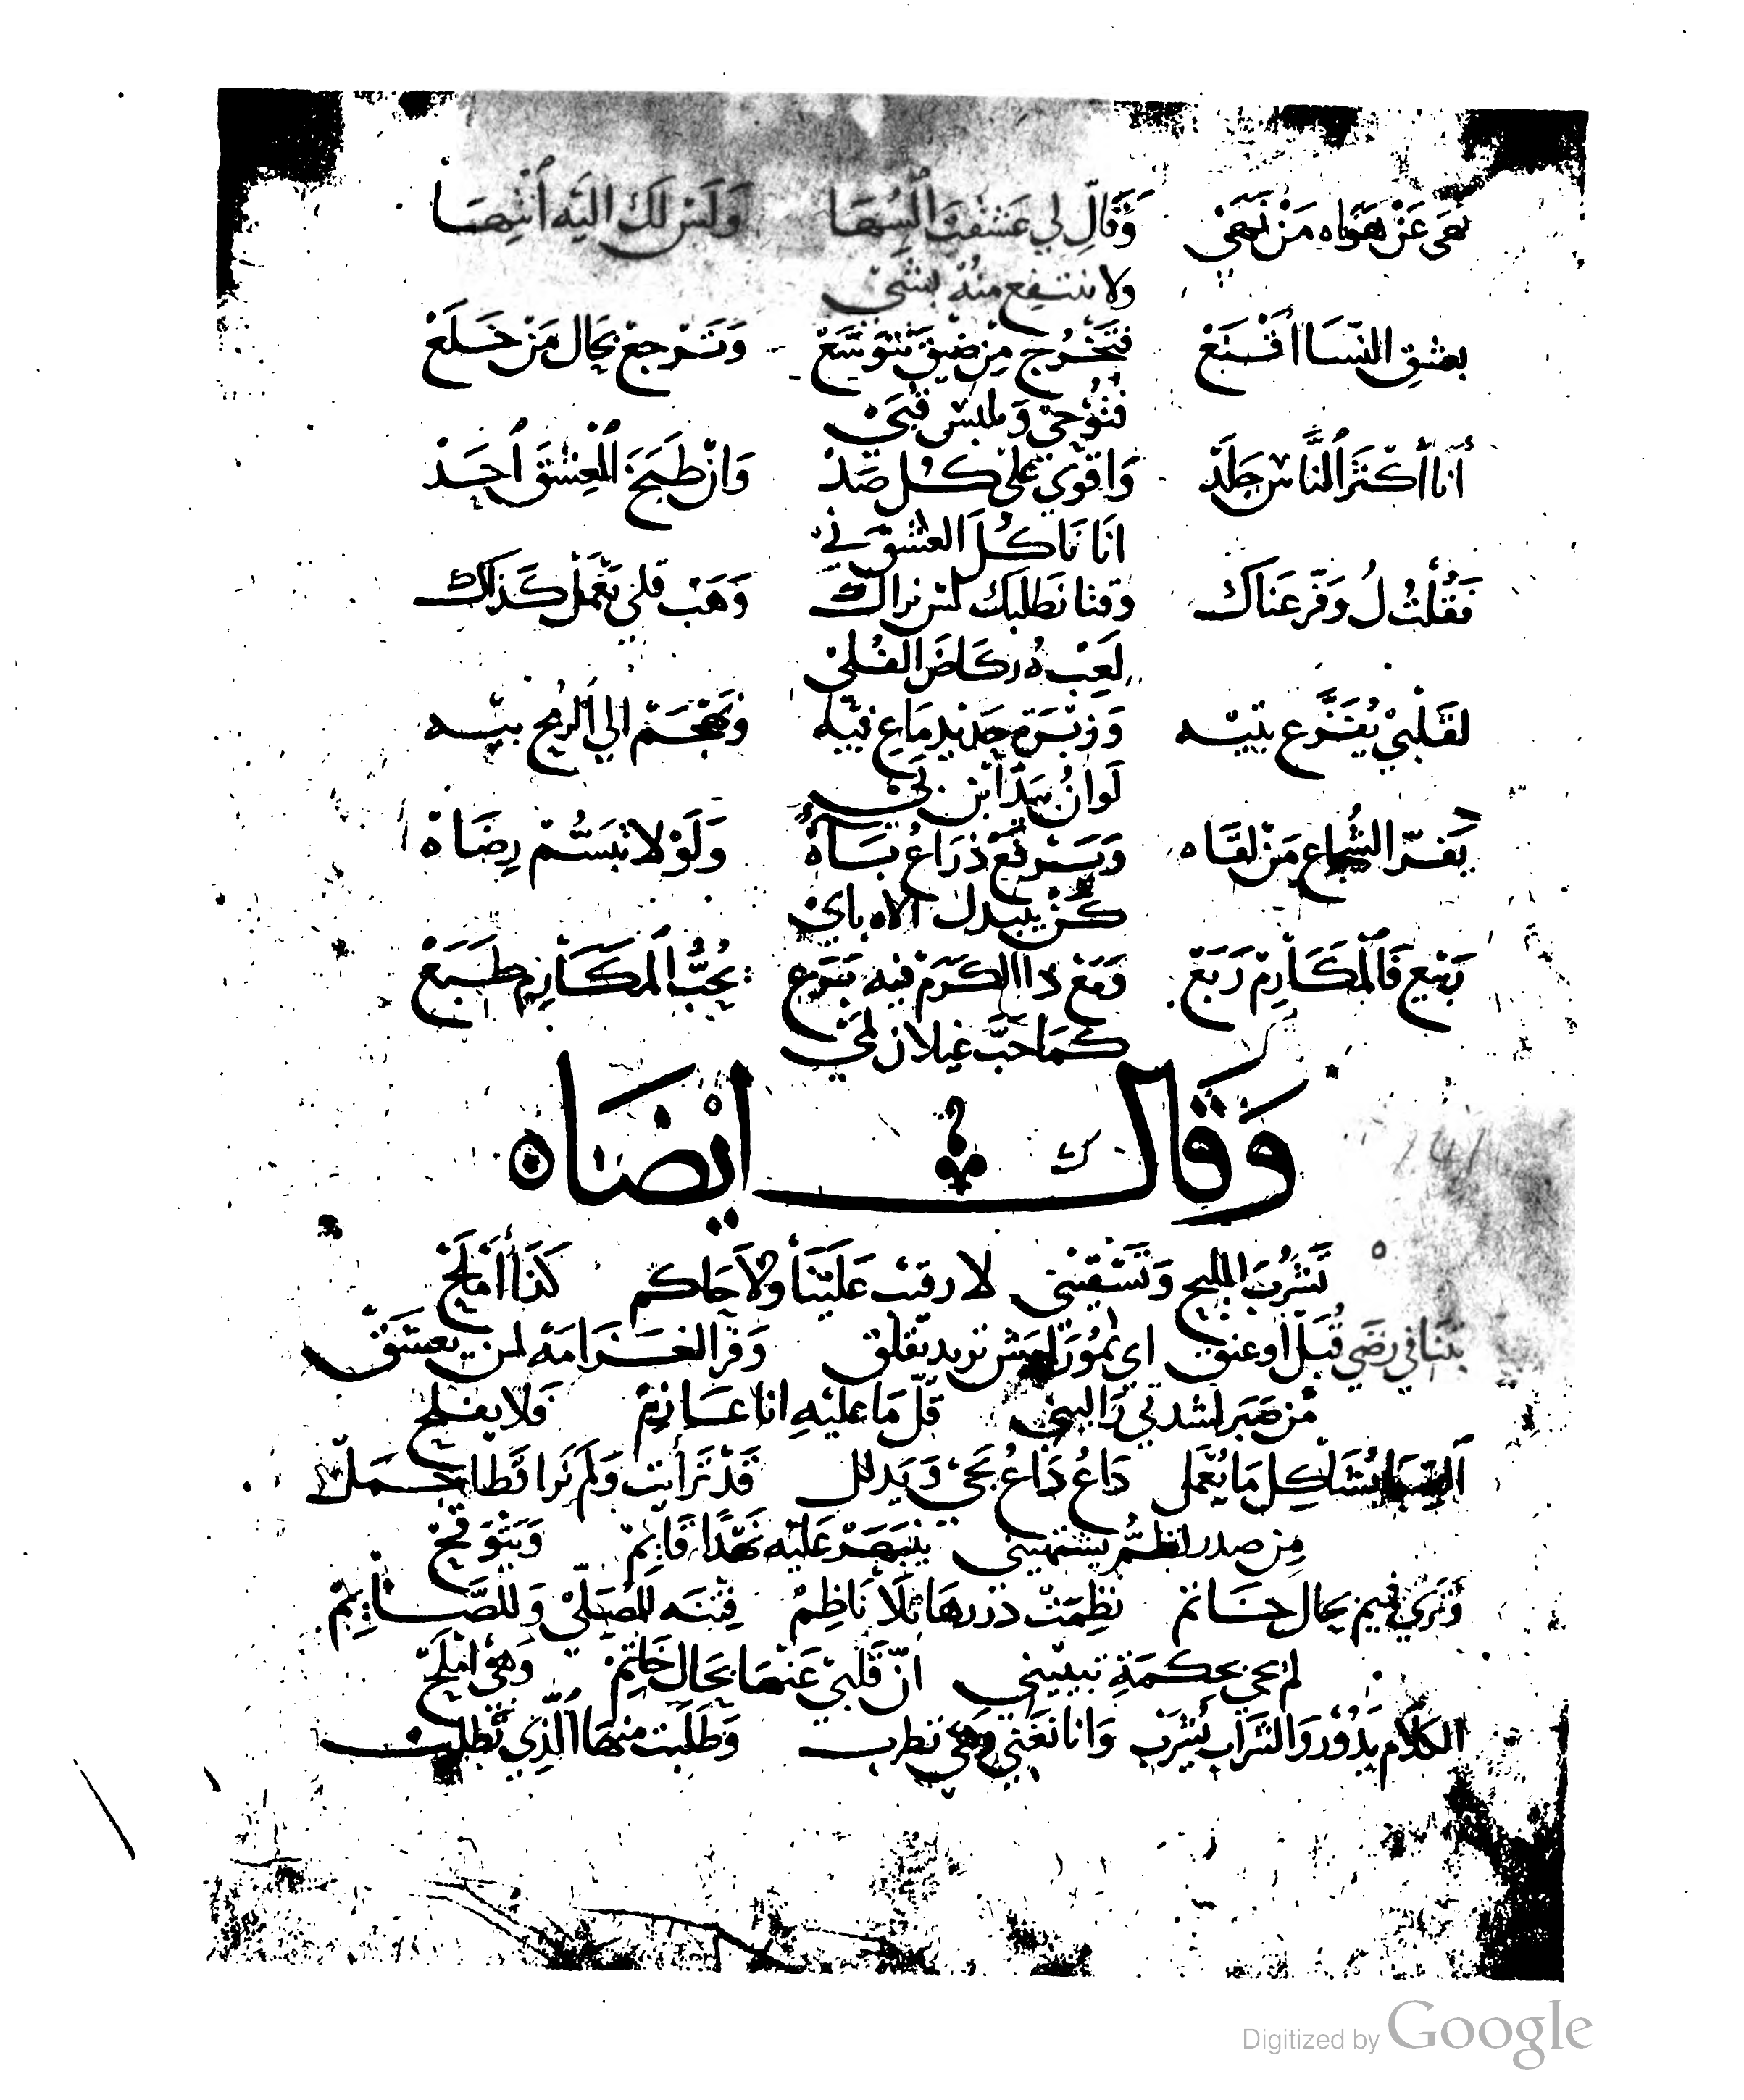 نَهَى عَنْ هَوَاه مَنْ نَهَىْ وَقَالِّ لي عَشقت السُّهَا وَلَسْ لَكْ الَيْه اُنْتِهَا
ولا ننتفع منهُ بشَيْ
بعشقِ النّسَا اَقْتنَعْ فتَخْرُج مِنْ ضيقْ تتوَسَّعْ وَتَرْجعْ بحَال مَنْ خَلَعْ
فنُوحيْ وَيلبسْ قبَيْ
أنا أكْثَر اُلنَّاسْ جَلَدْ وَاقوَى عَلى كُل صَدْ وَانْ طَبَخَ اُلْعِشْقَ اَحَدْ
انَا نَاكُلَ العشق نيْ
فَقُلْتُ لُ وَفّر عَناكْ وقتا نَطلبَك لسْ نراكْ وَهَبْ قلبي يَعْمَلْ كَذاكْ
لَعِبْ هُ ركَاضَ الفُلَيْ
لقَلْبيْ يُفَزَّع بتيْه وَزبْرَة حَدْيد مَاع فيْه وَيهْجَمْ الي اُلرُمح بيْه
لَوانُ بيَدْ اَبْن لَيْ
يَفرّ الشُجاع مَنْ لقَاه وَيَسْرِ فَعْ ذرَاعُ بسَاهْ وَلَوْلا تبَسُّمْ رِضَاهْ
كُنْ يبدل الاه باي
رَبْيع فَالْمَكَارِمْ رَبَعْ وَمَعْ ذا الكَرَمْ فيه يَتَرع يُحبُّ اُلمَكَارِم طَبَعْ
كَمَا حَبَّ غيلان لمَيْ
وَقَال ايْضَاه
تَشْرُبَ المليح وَتَسْقيْني لا رقيْب عَلَيْنَا ولاَ حَاكم كَذَا أمْلَحْ
بتنا في رضَي قُبَلْ أو عنق اي تمُورْ لِيش تريد تقلق وَفّر الغَرَامَهْ لمن يعشَقْ
مَن صَبَر قُلّ مَا عليْهِ انا عَازِمْ فلا يفلح
بشَاكِل مَا يُعْمَل دَاعُ دَاعُ يجَيْ وَيَدلل قَدْ تَرَأيت وَلَمْ نَرا قَطا جمَلْ
مِن صدر يشتهيني يَنْبَهَرْ عَليْه نَهْدًا قَايمْ وَيَتْوَقحْ
وَتَري فيم بحَال خَاتم نظمَتْ دُرَرهَا بَلا نَاظِمْ فتْنَه للمُصَلّيْ وَللصَّايمْ
لم يجي بحكمَةِ تبييني انّ قَلبيْ عَنْهَا بحَال خَاتمْ وَهْيَ امْلَحْ
الكلاَم يَدُوْر وَالشرَاب يُشْرَبْ وَانا نغَني وَهْي تطرب وَطَلَبْت منهَا الّذِي نَطلب
Digitized by Google